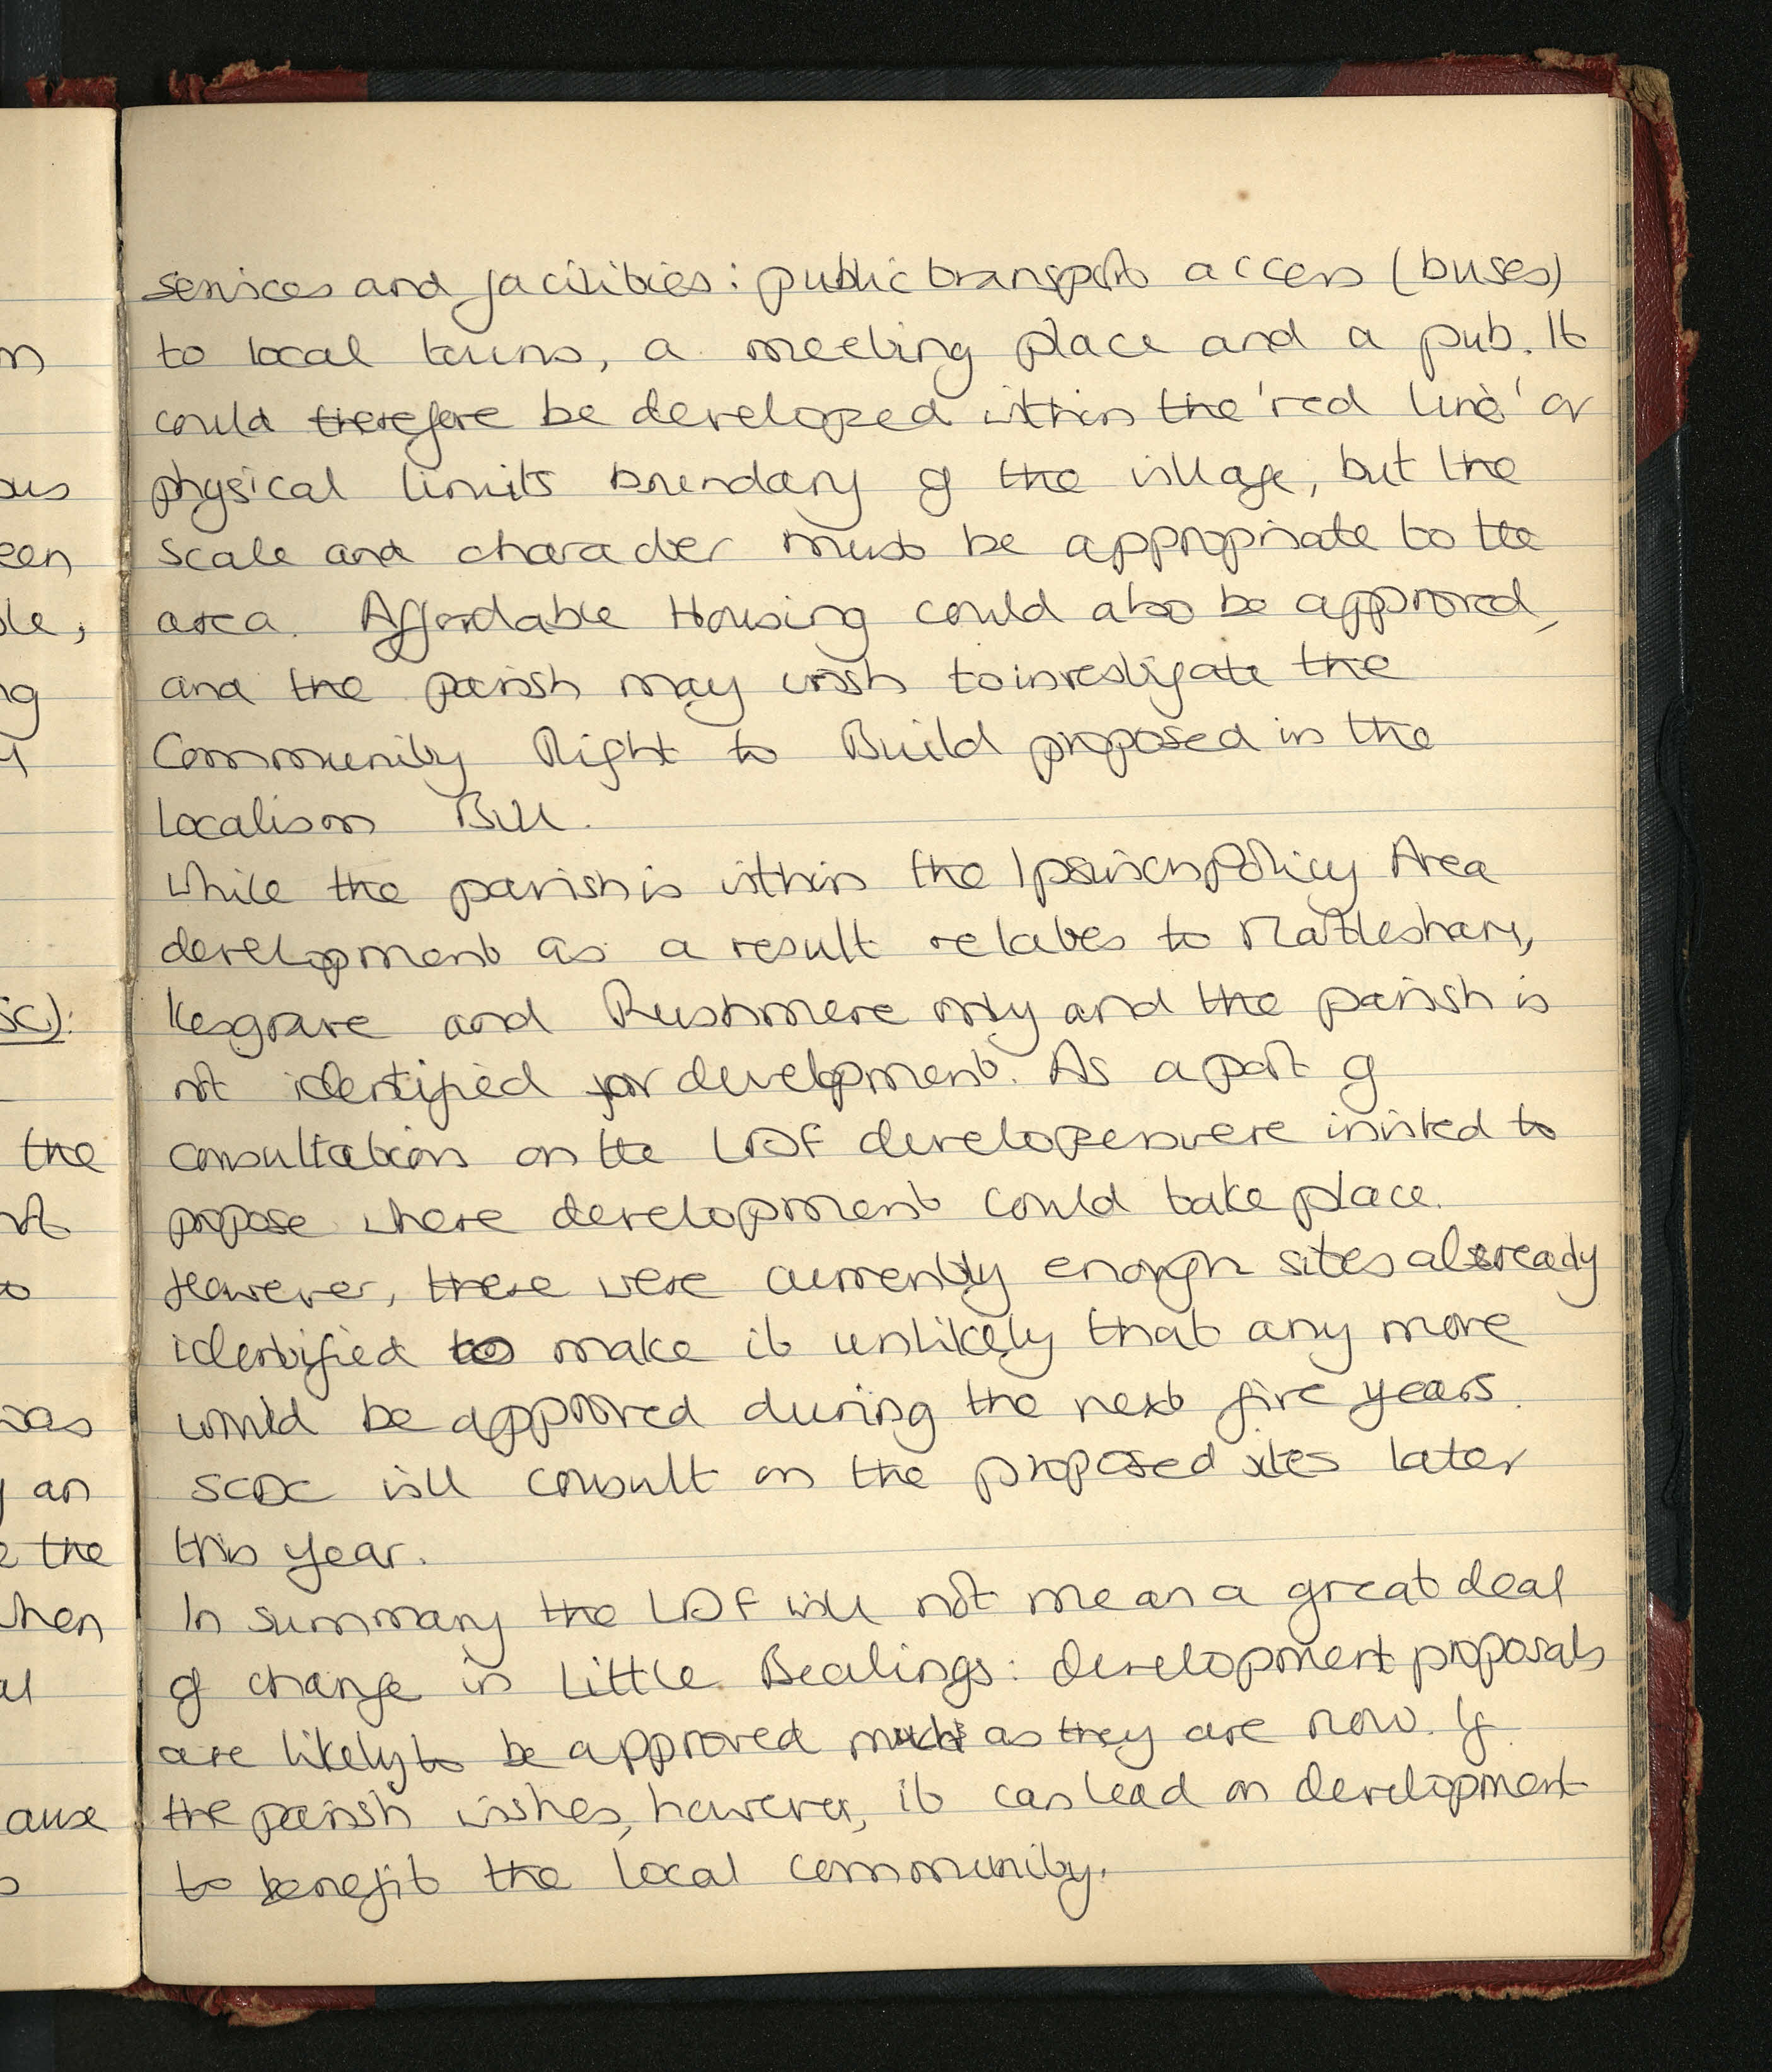 services and facilities: public transport access (buses)
to local towns, a meeting place and a pub. It
could therefore be developed within the 'red line' or
physical limits boundary of the village, but the
scale and character must be appropriate to the
area. Affordable Housing could also be approved,
and the parish may wish to investigate the
Community Right to Build proposed in the
Localism Bill.
While the parish is within the Ipswich Policy Area
development as a result relates to Martlesham,
Kesgrave and Rushmere only and the parish is
not identified for development. As a part of
consultation on the LDF developers were invited to
propose where development could take place.
However, there were currently enough sites already
identified to make it unlikely that any more
would be approved during the next five years.
SCDC will consult on the proposed sites later
this year.
In summary the LDF will not mean a great deal
of change in Little Bealings: development proposals
are likely to be approved much as they are now. If
the parish wishes, however, it can lead on development
to benefit the local community.